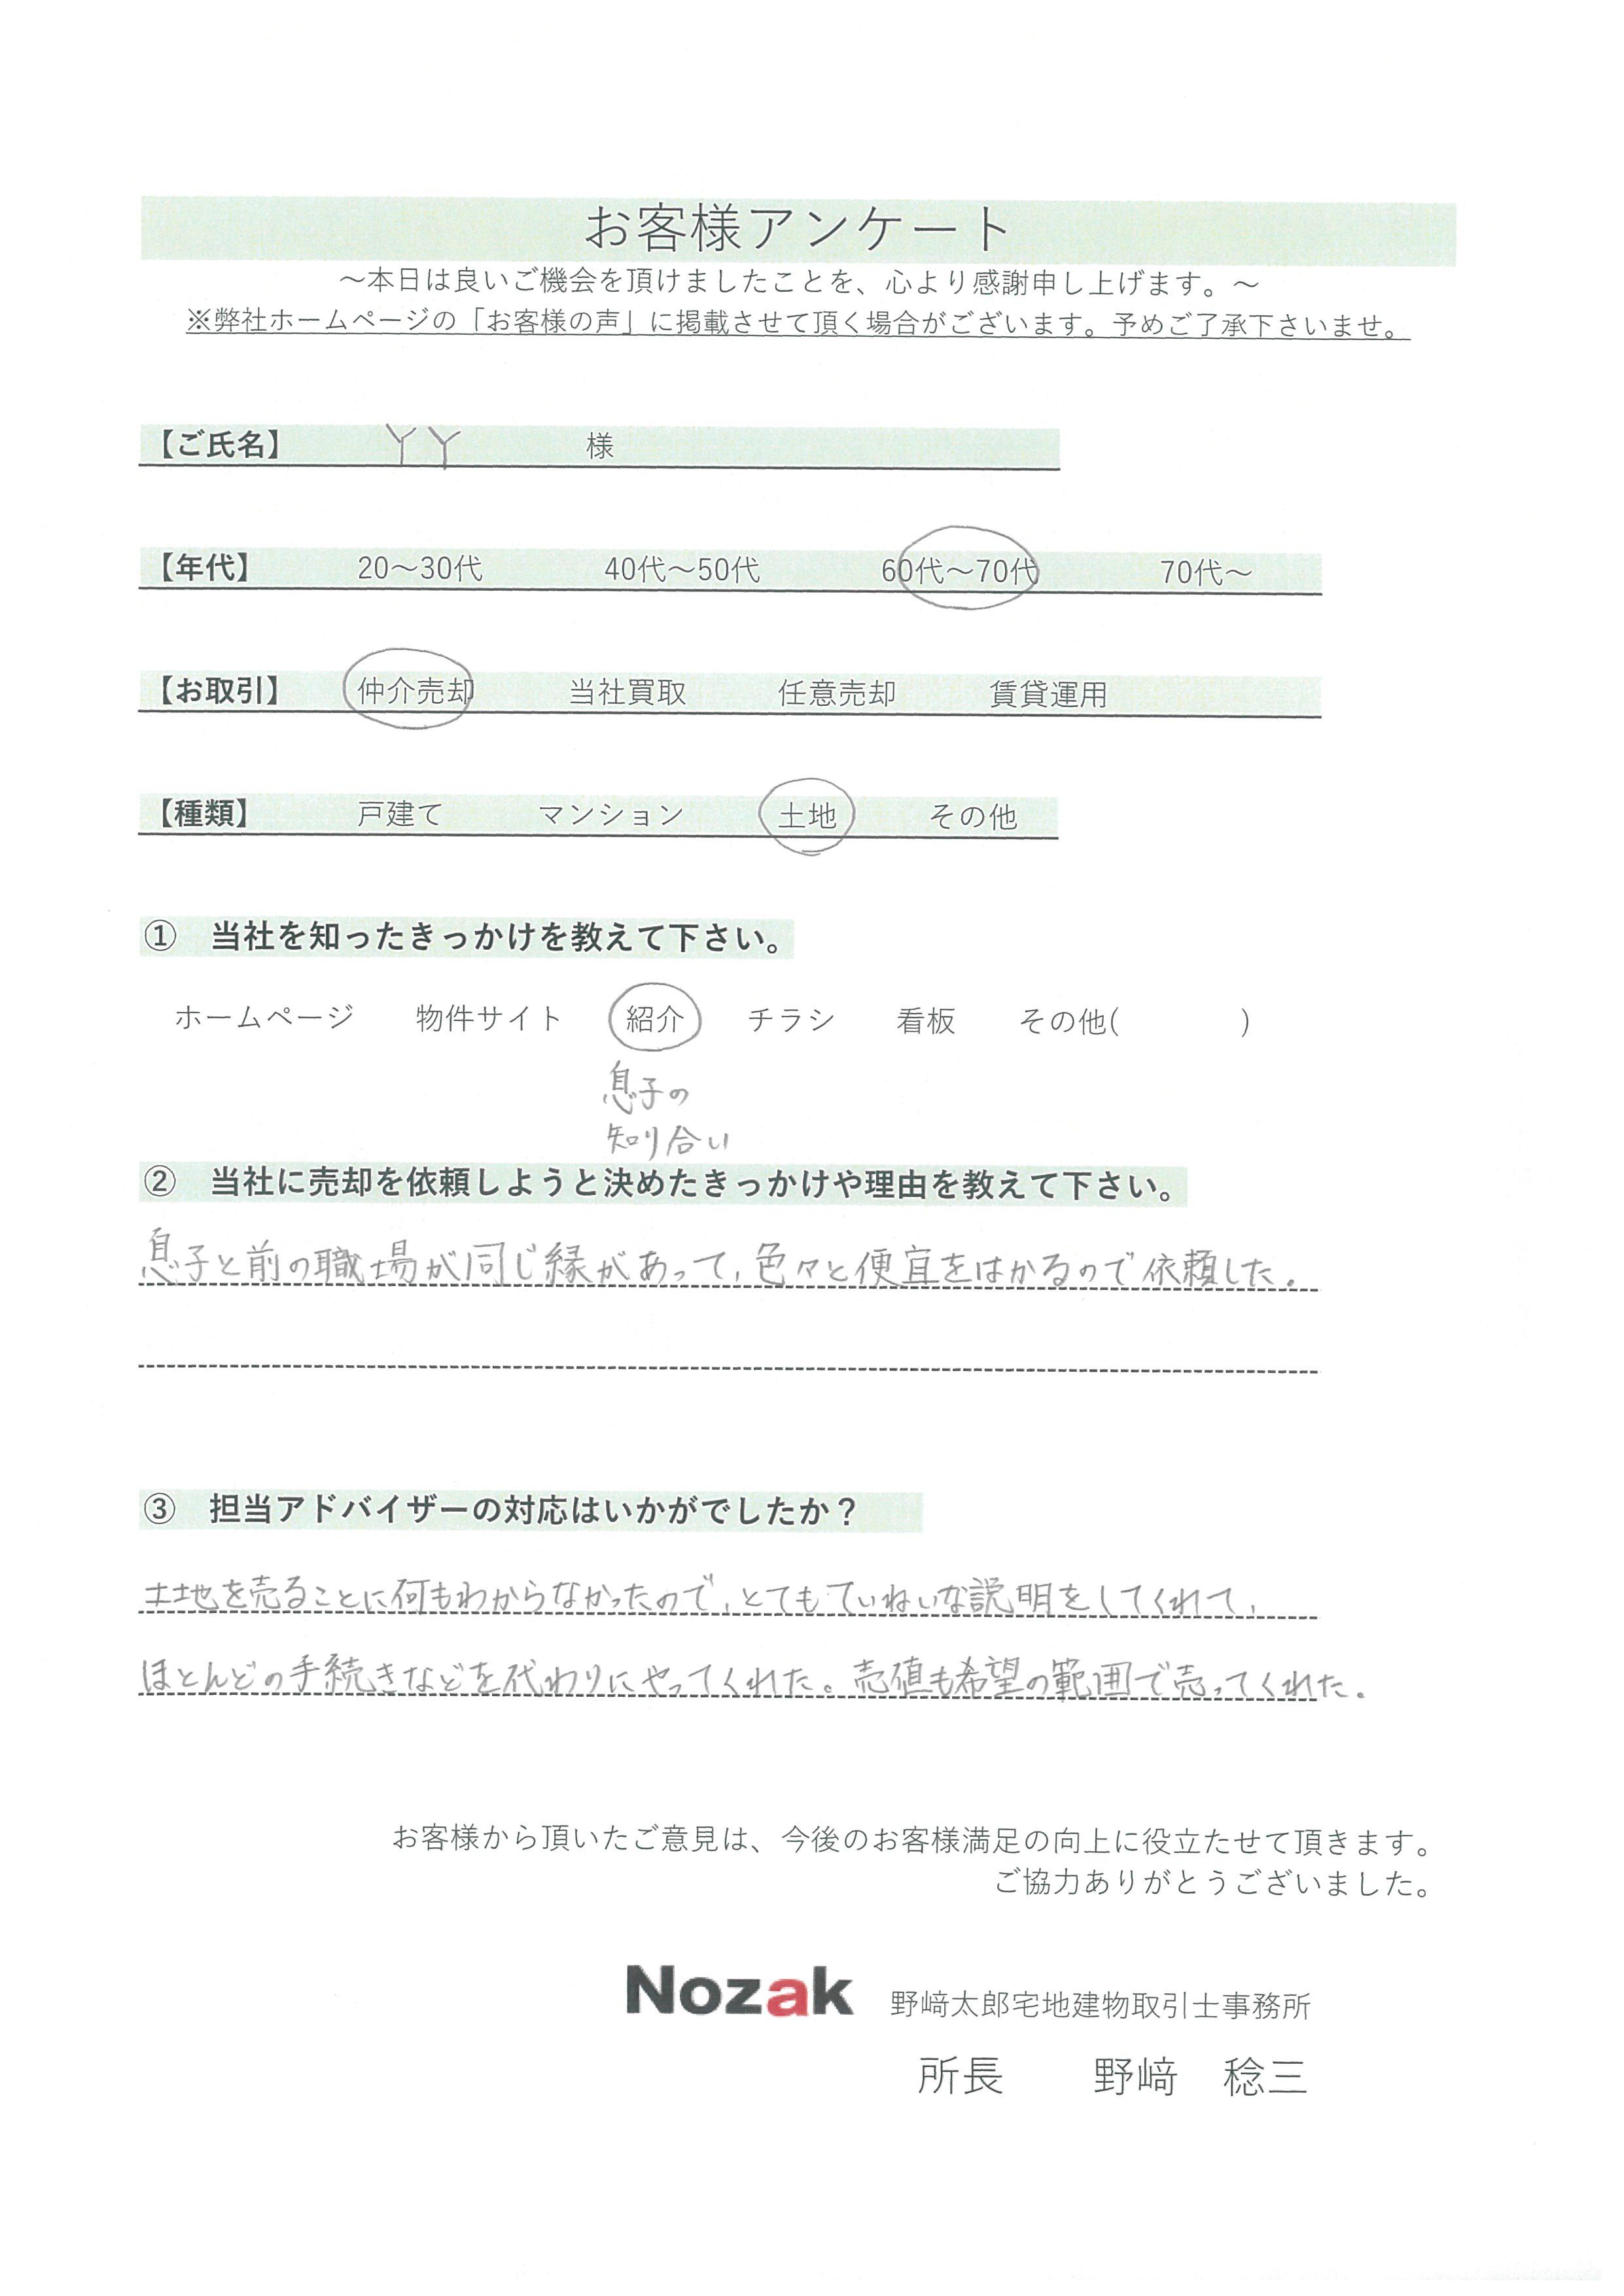 お客様アンケート
～本日は良いご機会を頂けましたことを、心より感謝申し上げます。～
※弊社ホームページの「お客様の声」に掲載させて頂く場合がございます。予めご了承下さいませ。
【ご氏名】 YY 様
【年代】 20～30代 40代～50代 60代～70代 70代～
【お取引】 仲介売却 当社買取 任意売却 賃貸運用
【種類】 戸建て マンション 土地 その他
① 当社を知ったきっかけを教えて下さい。
ホームページ 物件サイト 紹介 チラシ 看板 その他( )
息子の
知り合い
② 当社に売却を依頼しようと決めたきっかけや理由を教えて下さい。
息子と前の職場が同じ縁があって、色々と便宜をはかるので依頼した。
③ 担当アドバイザーの対応はいかがでしたか？
土地を売ることに何もわからなかったので、とてもていねいな説明をしてくれて、
ほとんどの手続きなどを代わりにやってくれた。売値も希望の範囲で売ってくれた。
お客様から頂いたご意見は、今後のお客様満足の向上に役立たせて頂きます。
ご協力ありがとうございました。
Nozak 野﨑太郎宅地建物取引士事務所
所長 野﨑 稔三